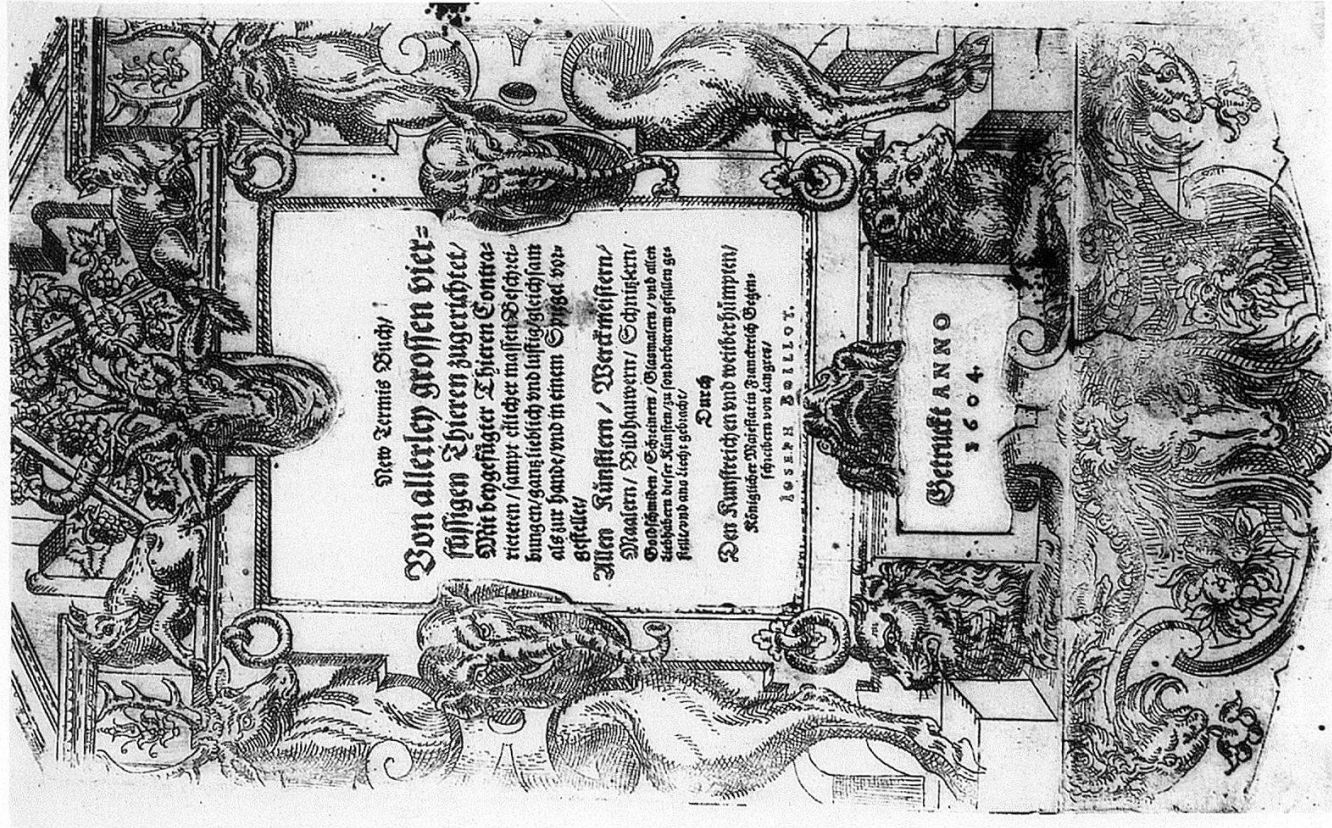 New Termis Buch/
Von allerley grossen vier=
füssigen Thieren zugerichtet/
Mit beygefügter Thieren Contra=
rieteten / sampt etlicher massen Beschrei=
bungen/ganz lieblich vnd lustig/gleichsam
als zur hande/vnd in einem Spiegel vor=
gestellet/
Allen Künstlern / Werckmeistern/
Maalern/ Bildhauwern/ Schnitzkern/
Goldschmiden / Schreinern / Glasmalern / vnd allen
Liebhabern dieser Künsten/zu sonderbarem gefallen ge=
stellt/vnd ans Liecht gebracht/
Durch
Den Kunstreichen vnd weitberhümpten/
Königlicher Maiestat in Franckreich Gegen=
schreibern von Langres/
IOSEPH BOILLOT.
Getruckt ANNO
1604.